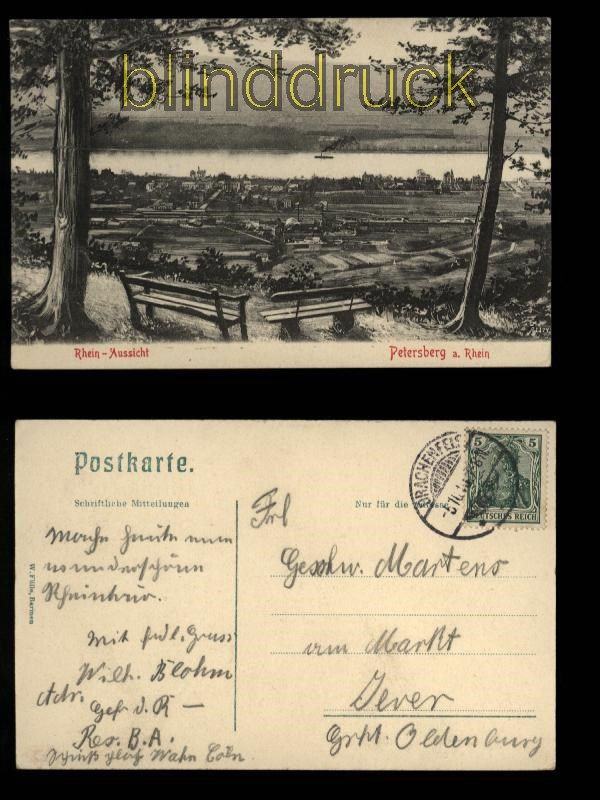 blinddruck
Rhein-Aussicht
Petersberg a. Rhein
Postkarte.
Schriftliche Mitteilungen
Nur für die Adresse
DRACHENFELS
5 5
DEUTSCHES REICH
W. Fülle, Barmen
Mache heute eine
wunderschöne
Rheintour.
Mit frdl. Gruss
Wilh. Blohm
Adr.
Gefr. d. R
Res. B.A.
Schießplatz Wahn Cöln
Frl
Geschw. Martens
am Markt
Jever
Grht. Oldenburg